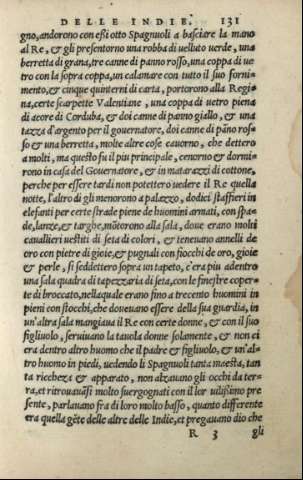 DELLE INDIE. 131
gno,andorono con essi otto Spagnuoli a basciare la mano
al Re, & gli presentorno una robba di uelluto uerde, una
berretta di grana, tre canne di panno rosso, una coppa di ue
tro con la sopra coppa, un calamare con tutto il suo forni-
mento, & cinque quinterni di carta, portorono alla Regi
na, certe scarpette Valentiane, una coppa di uetro piena
di acore di Corduba, & doi canne di panno giallo, & una
tazza d'argento per il gouernatore, doi canne di pãno ros-
so & una berretta, molte altre cose cauorno, che dettero
a molti, ma questo fu il piu principale, cenorno & dormi-
rono in casa del Gouernatore, & in matarazzi di cottone,
perche per essere tardi non potettero uedere il Re quella
notte, l'altro di gli menorono a palazzo, dodici staffieri in
elefanti per certe strade piene de huomini armati, con spa-
de, lanze, & targhe, mõtorono alla sala, doue erano molti
cauallieri uestiti di seta di colori, & teneuano annelli de
oro con pietre di gioie, & pugnali con fiocchi de oro, gioie
& perle, si seddettero sopra un tapeto, c'era piu adentro
una sala quadra di tapezzaria di seta, con le finestre coper-
te di broccato, nella quale erano fino a trecento huomini in
pieni con stocchi, che doueuano essere della sua guardia, in
un'altra sala mangiaua il Re con certe donne, & con il suo
figliuolo, seruiuano la tauola donne solamente, & non ci
era dentro altro huomo che il padre & figliuolo, & un'al-
tro huomo in piedi, uedendo li Spagnuoli tanta maestà, tan
ta richezza & apparato, non alzauano gli occhi da ter-
ra, et ritrouauãsi molto suergognati con il lor uilissimo pre
sente, parlauano fra di loro molto basso, quanto differente
era quella gẽte delle altre delle Indie, et pregauano dio che
R 3 gli